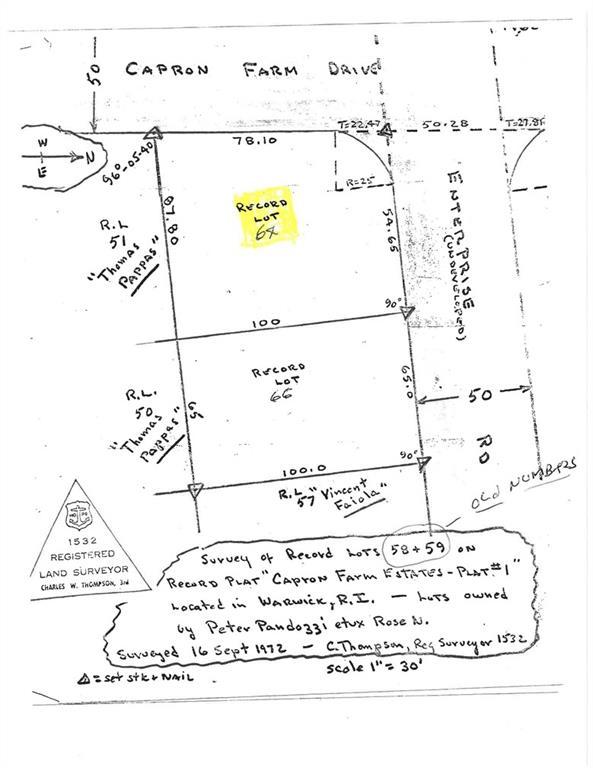 50
CAPRON FARM DRIVE
T=22.47
50.28
T=27.81
78.10
W
N
E
96°-05-40
R=25
RECORD
LOT
87.80
54.65
ENTERPRISE
(UNDEVELOPED)
R.L
51
"Thomas
PAPPAS"
90°
100
RECORD
LOT
66
R.L.
50
"Thomas
Pappas"
65
65.0
50
RD
90°
100.0
R.L. "Vincent
57 Faiola"
OLD NUMBERS
1532
REGISTERED
LAND SURVEYOR
CHARLES W. THOMPSON, 3rd
Survey of Record LOTS 58+59 on
RECORD PLAT "CAPRON FARM ESTATES-PLAT #1"
Located in WARWICK, R.I. — Lots owned
by Peter Pandozzi etux Rose N.
Surveyed 16 Sept 1972 — C.Thompson, Reg Surveyor 1532
scale 1"=30'
△=set stk+NAIL